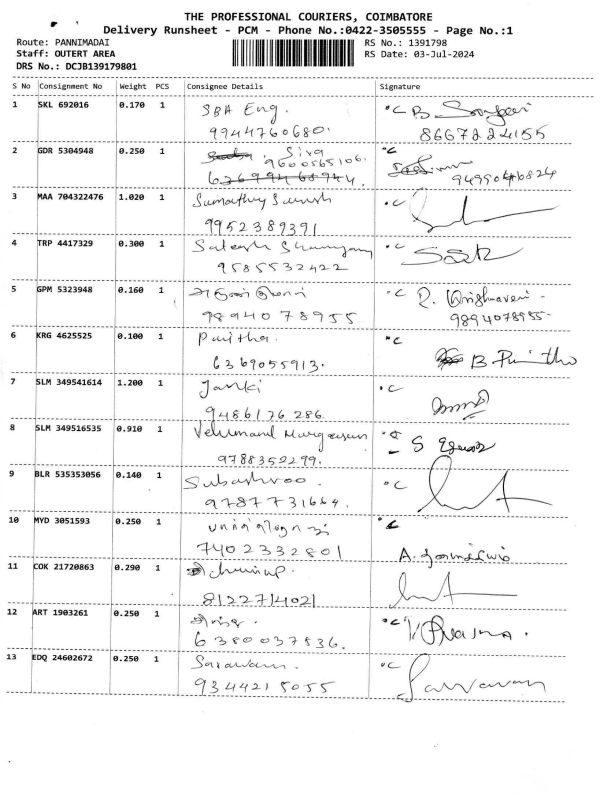 THE PROFESSIONAL COURIERS, COIMBATORE
Delivery Runsheet - PCM - Phone No.:0422-3505555 - Page No.:1
Route: PANNIMADAI
RS No.: 1391798
Staff: OUTERT AREA
RS Date: 03-Jul-2024
DRS No.: DCJB139179801
S No Consignment No Weight PCS Consignee Details Signature
1 SKL 692016 0.170 1 SBA Eng. °C B.
9944760680. 8667224155
2 GDR 5304948 0.250 1 Siva °C
9600565106.
3 MAA 704322476 1.020 1 Sumathy Suresh °C
9952389391
4 TRP 4417329 0.300 1 Satesh °C
9585532422
5 GPM 5323948 0.160 1 °C R. Krishnaveni
9894078955 9894078955
6 KRG 4625525 0.100 1 Pavitha °C
6369055913. B
7 SLM 349541614 1.200 1 Janki °C
9486176286.
8 SLM 349516535 0.910 1 Velumani Murgesan
9788352299. S
9 BLR 535353056 0.140 1 °C
9787731664.
10 MYD 3051593 0.250 1 °C
7402332801 A.
11 COK 21720863 0.290 1
8122714021
12 ART 1903261 0.250 1 °C
6380037836.
13 EDQ 24602672 0.250 1 Saravan. °C
9344215055 Sarvavan